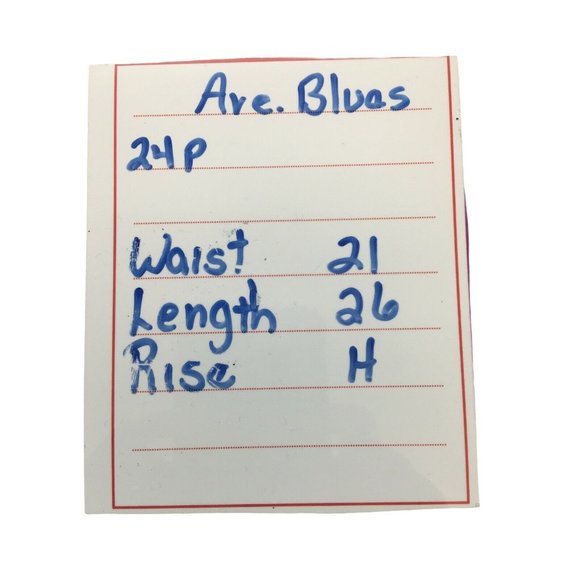 Ave. Blues
24P
Waist 21
Length 26
Rise H